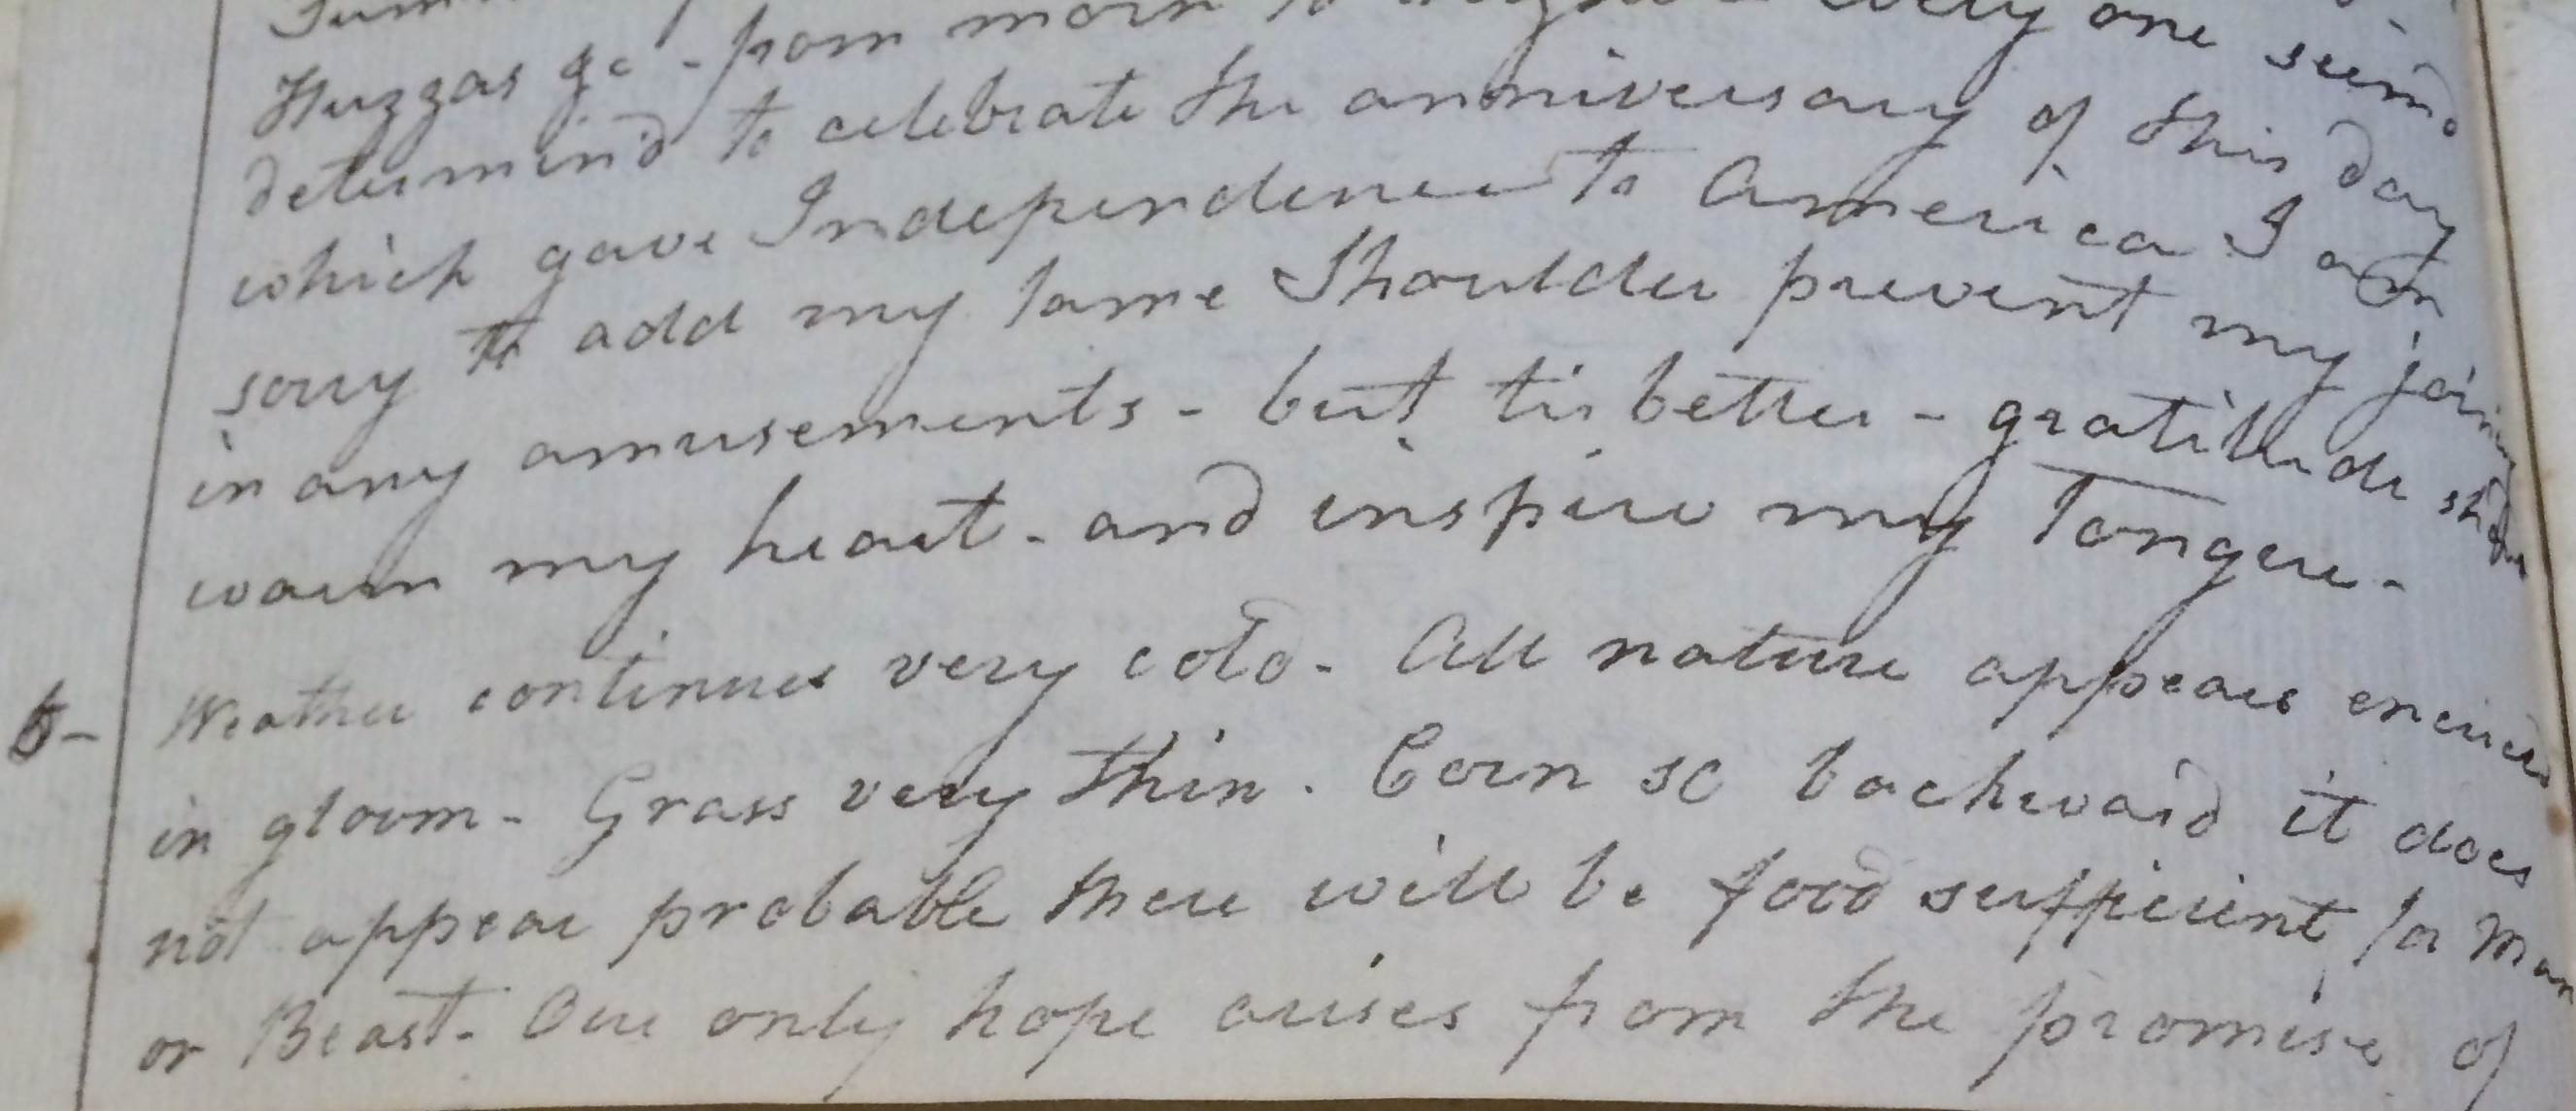 Huzzas &c - from morn to night - every one seem'd
determin'd to celebrate the anniversary of this day
which gave Independence to America I am
sorry to add my lame Shoulder prevent my joining
in any amusements - but tis better - gratitude shd
warm my heart - and inspire my Tongue -
5- Weather continues very cold - All nature appears
in gloom - Grass very thin . Corn so backward it does
not appear probable there will be food sufficient for Man
or Beast - Our only hope arises from the promise of